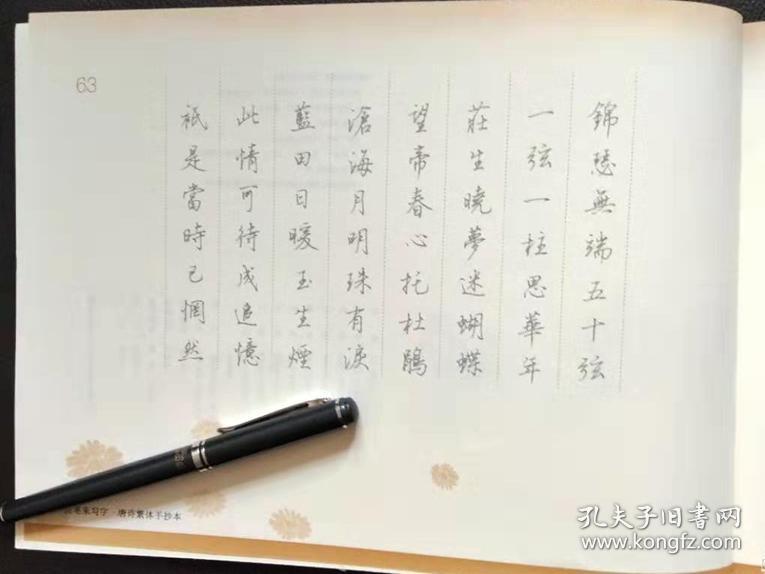 錦瑟無端五十弦
一弦一柱思華年
莊生曉夢迷蝴蝶
望帝春心托杜鵑
滄海月明珠有淚
藍田日暖玉生煙
此情可待成追憶
祇是當時已惘然
63
来习字·唐诗繁体手抄本
孔夫子旧书网
www.kongfz.com